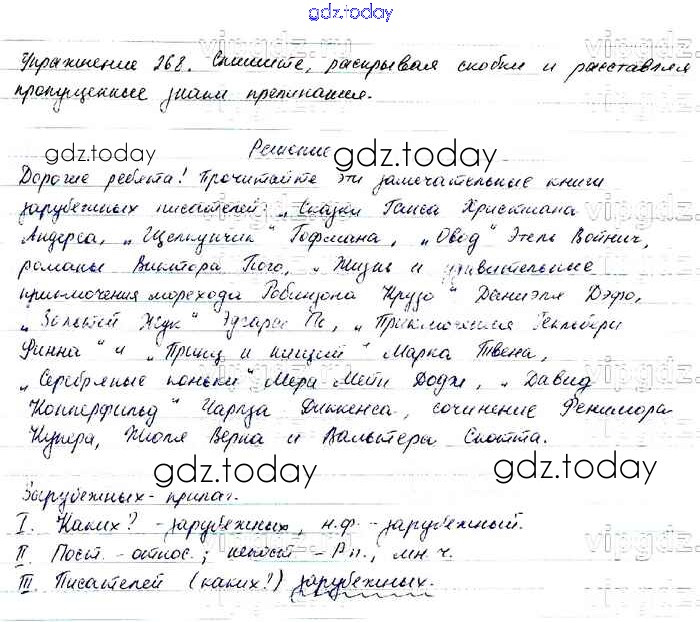 gdz.today
Упражнение 268. Спишите, раскрывая скобки и расставляя
пропущенные знаки препинания.
Решение
gdz.today gdz.today
Дорогие ребята! Прочитайте эти замечательные книги
зарубежных писателей „Сказки Ганса Христиана
Андерса, „Щелкунчик" Гофмана, „Овод" Этель Войнич,
романы Виктора Гюго, „Жизнь и удивительные
приключения морехода Робинзона Крузо" Даниэля Дэфо,
„Золотой Жук" Эдгара По, „Приключения Гекльбери
Финна" и „Принц и нищий" Марка Твена,
„Серебряные коньки" Мери Мейп Додж, „Давид
Копперфильд" Чарлза Диккенса, сочинение Фенимора
Купера, Жюля Верна и Вальтера Скотта.
gdz.today gdz.today
Зарубежных - прилаг.
I. Каких? - зарубежных, н.ф. - зарубежный.
II. Пост. - относ.; непост - Р.п., мн.ч.
III. Писателей (каких?) зарубежных.
gdz.today
vipgdz.ru